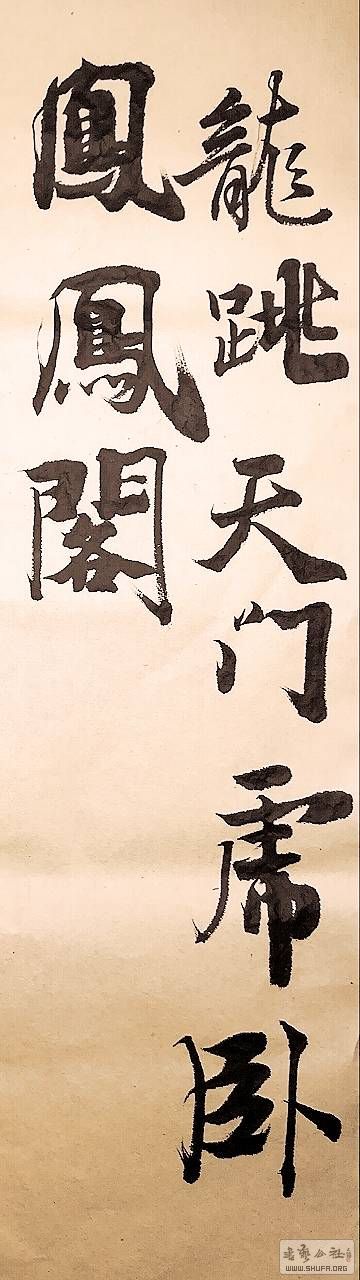 龍跳天门虎卧
凰鳳閣
书艺公社
WWW.SHUFA.ORG